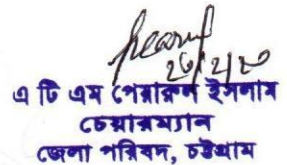 ২৫/২/২০
এ টি এম পেয়ারুল ইসলাম
চেয়ারম্যান
জেলা পরিষদ, চট্টগ্রাম